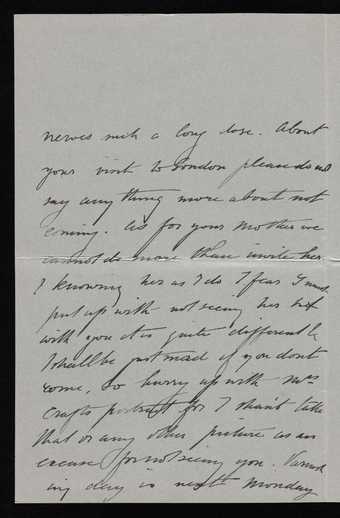 nerves with a long dose. About
your visit to London please do not
say any thing more about not
coming. As for your Mother we
cannot do more than invite her
& knowing her as I do I fear I must
put up with not seeing her but
with you it is quite different &
I shall be just mad if you dont
come, so hurry up with Mrs
Crafts portrait for I shan't take
that or any other picture as an
excuse for not seeing you. Varnish
ing day is next Monday